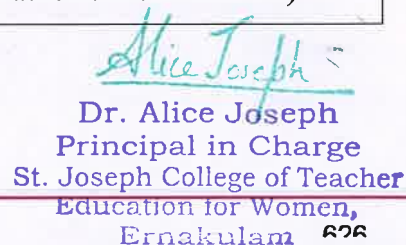 Alice Joseph
Dr. Alice Joseph
Principal in Charge
St. Joseph College of Teacher
Education for Women,
Ernakulam 626